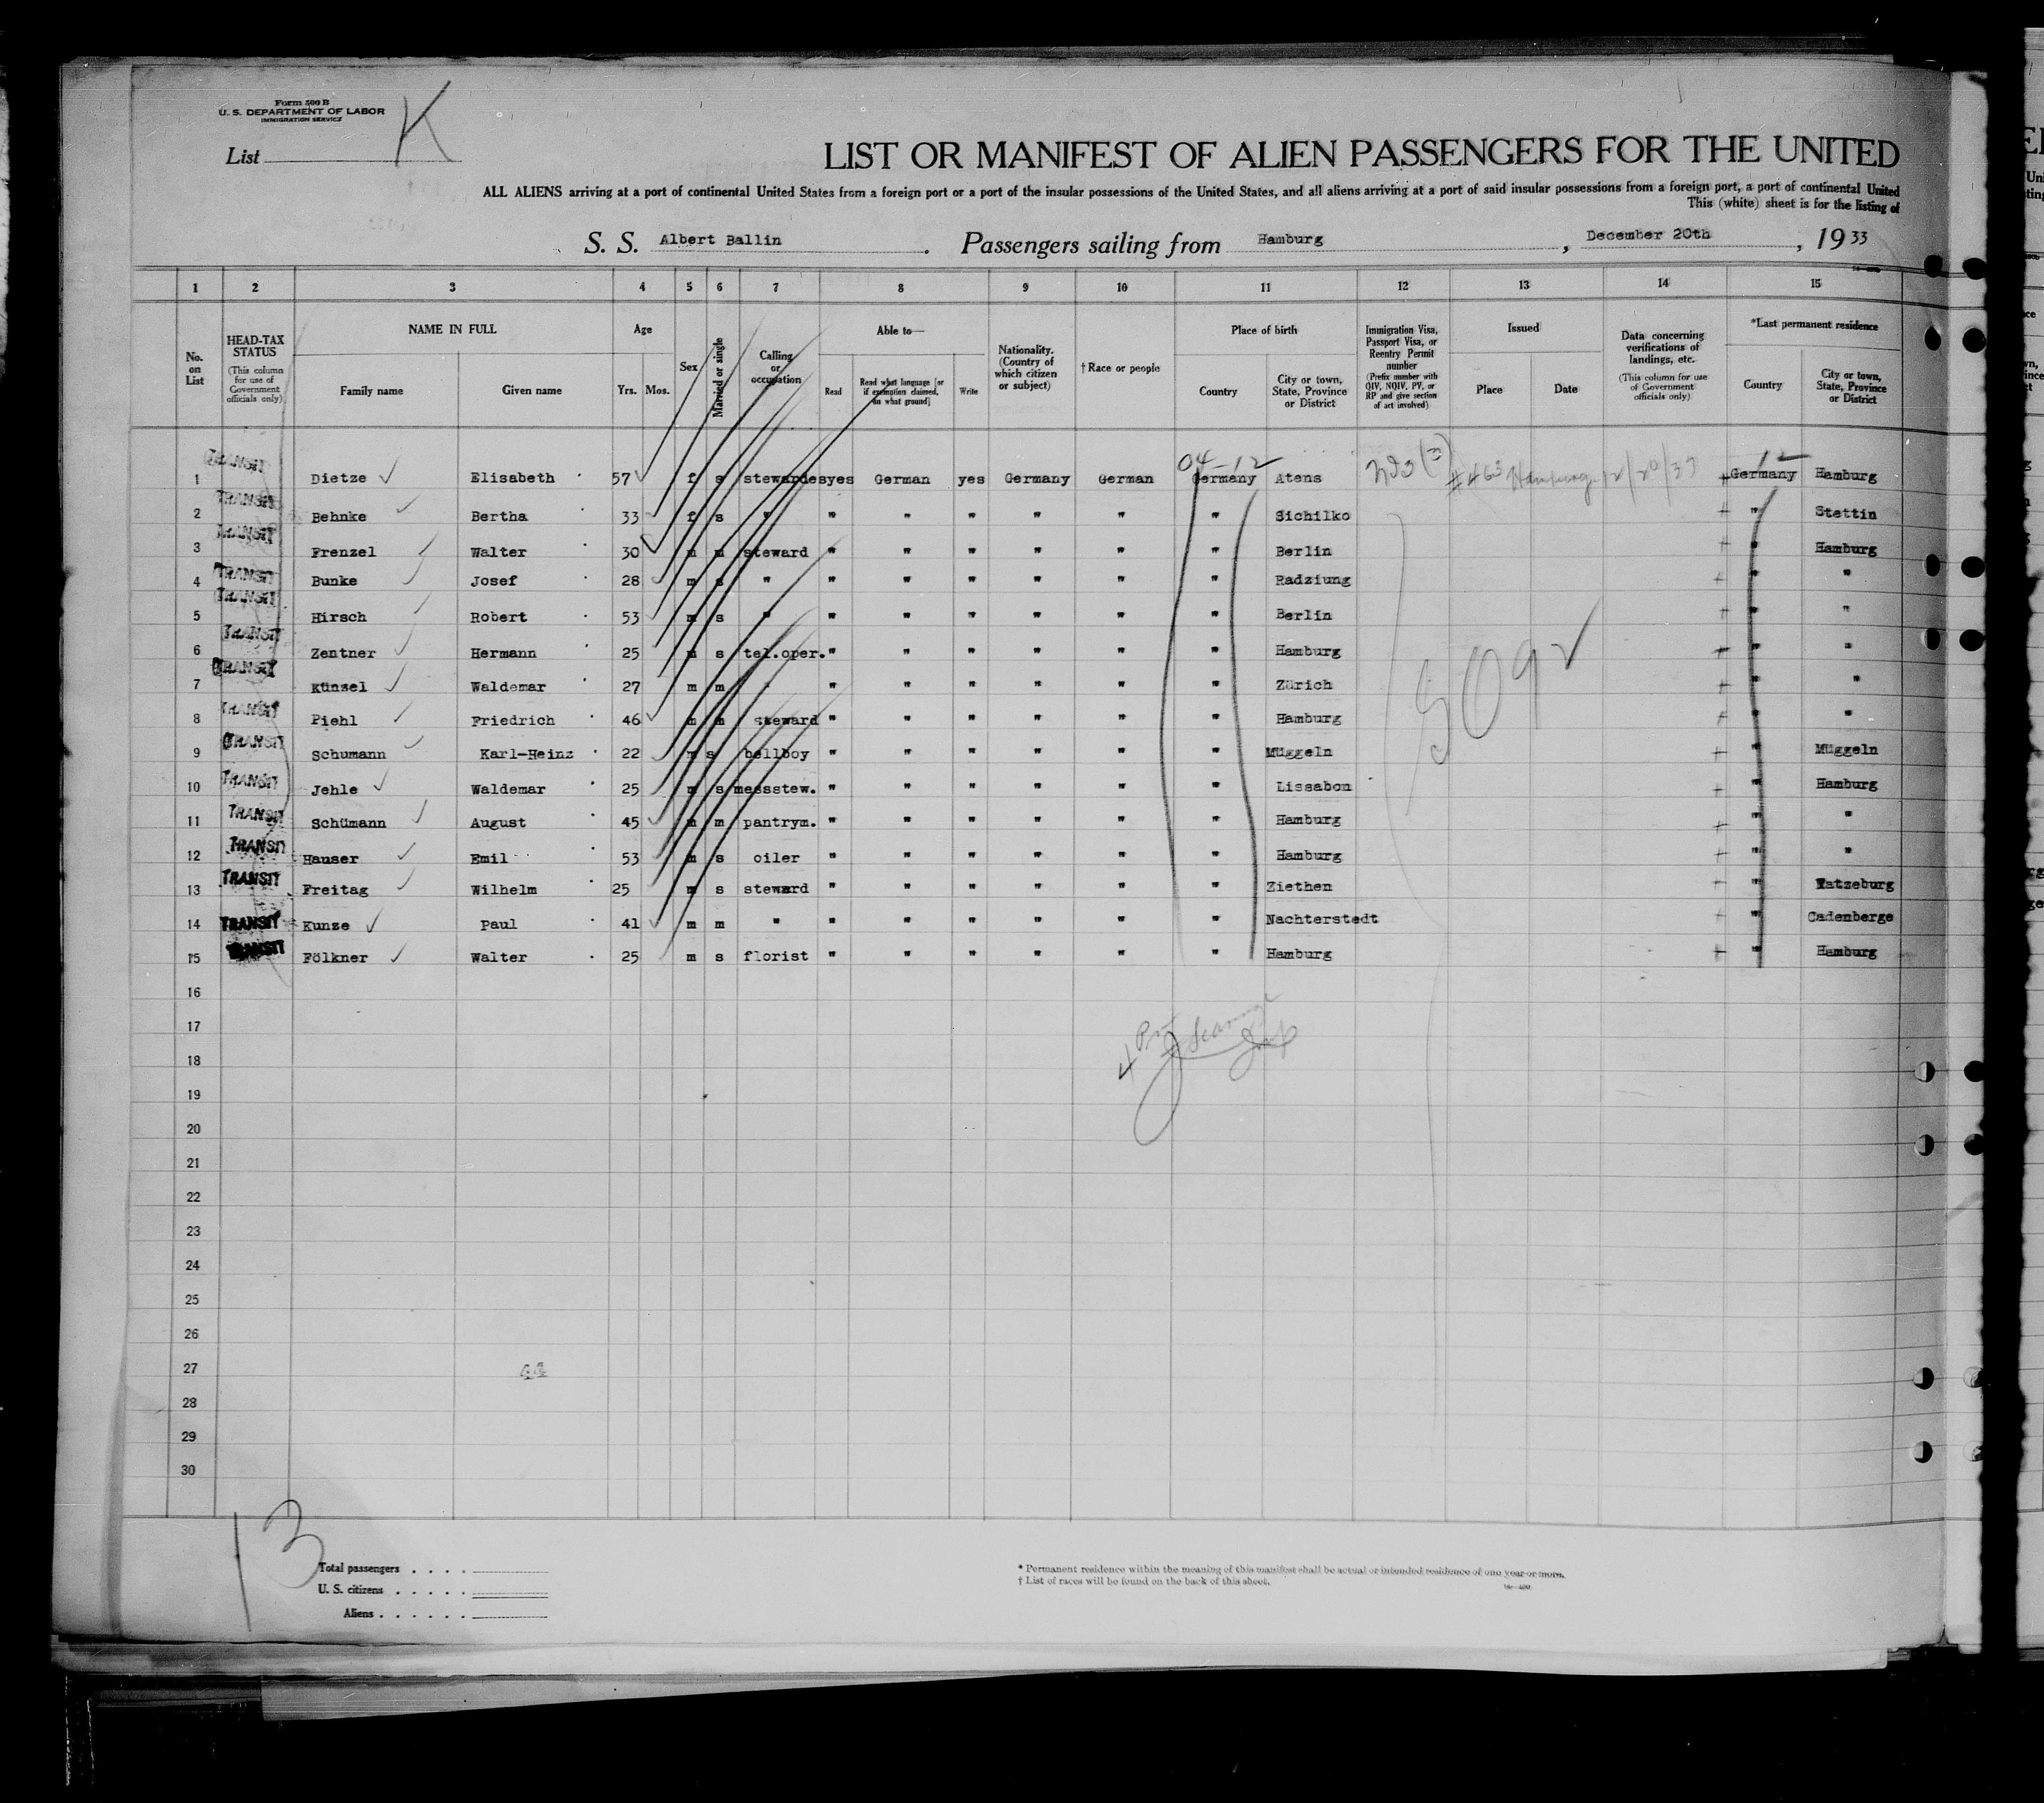 Form 500 B
U. S. DEPARTMENT OF LABOR
IMMIGRATION SERVICE
K
List
LIST OR MANIFEST OF ALIEN PASSENGERS FOR THE UNITED
ALL ALIENS arriving at a port of continental United States from a foreign port or a port of the insular possessions of the United States, and all aliens arriving at a port of said insular possessions from a foreign port, a port of continental United
This (white) sheet is for the listing of
S. S. Albert Ballin . Passengers sailing from Hamburg , December 20th , 19 33
1 2 3 4 5 6 7 8 9 10 11 12 13 14 15
No. on List
HEAD-TAX STATUS (This column for use of Government officials only)
NAME IN FULL Family name Given name
Age Yrs. Mos.
Sex
Married or single
Calling or occupation
Able to— Read Read what language [or if exemption claimed, on what ground] Write
Nationality. (Country of which citizen or subject)
† Race or people
Place of birth Country City or town, State, Province or District
Immigration Visa, Passport Visa, or Reentry Permit number (Prefix number with QIV, NQIV, PV, or RP and give section of act involved)
Issued Place Date
Data concerning verifications of landings, etc. (This column for use of Government officials only)
*Last permanent residence Country City or town, State, Province or District
04-12 12
1 TRANSIT Dietze Elisabeth 57 f s stewardes yes German yes Germany German Germany Atens #463 Hamburg 12/20/33 Germany Hamburg
2 TRANSIT Behnke Bertha 33 f s " " " " " " " Sichilko " Stettin
3 TRANSIT Frenzel Walter 30 m m steward " " " " " " Berlin " Hamburg
4 TRANSIT Bunke Josef 28 m s " " " " " " " Radziung " "
5 TRANSIT Hirsch Robert 53 m s " " " " " " " Berlin " "
6 TRANSIT Zentner Hermann 25 m s tel.oper. " " " " " " Hamburg " "
7 TRANSIT Künzel Waldemar 27 m m " " " " " " " Zürich " "
8 TRANSIT Piehl Friedrich 46 m m steward " " " " " " Hamburg " "
9 TRANSIT Schumann Karl-Heinz 22 m s bellboy " " " " " " Müggeln " Müggeln
10 TRANSIT Jehle Waldemar 25 m s messstew. " " " " " " Lissabon " Hamburg
11 TRANSIT Schümann August 45 m m pantrym. " " " " " " Hamburg " "
12 TRANSIT Hauser Emil 53 m s oiler " " " " " " Hamburg " "
13 TRANSIT Freitag Wilhelm 25 m s steward " " " " " " Ziethen " Ratzeburg
14 TRANSIT Kunze Paul 41 m m " " " " " " " Nachterstedt " Cadenberge
15 TRANSIT Fölkner Walter 25 m s florist " " " " " " Hamburg " Hamburg
16
17
18
19
20
21
22
23
24
25
26
27 44
28
29
30
13
Total passengers . . . .
U. S. citizens . . . . .
Aliens . . . . . .
* Permanent residence within the meaning of this manifest shall be actual or intended residence of one year or more.
† List of races will be found on the back of this sheet.